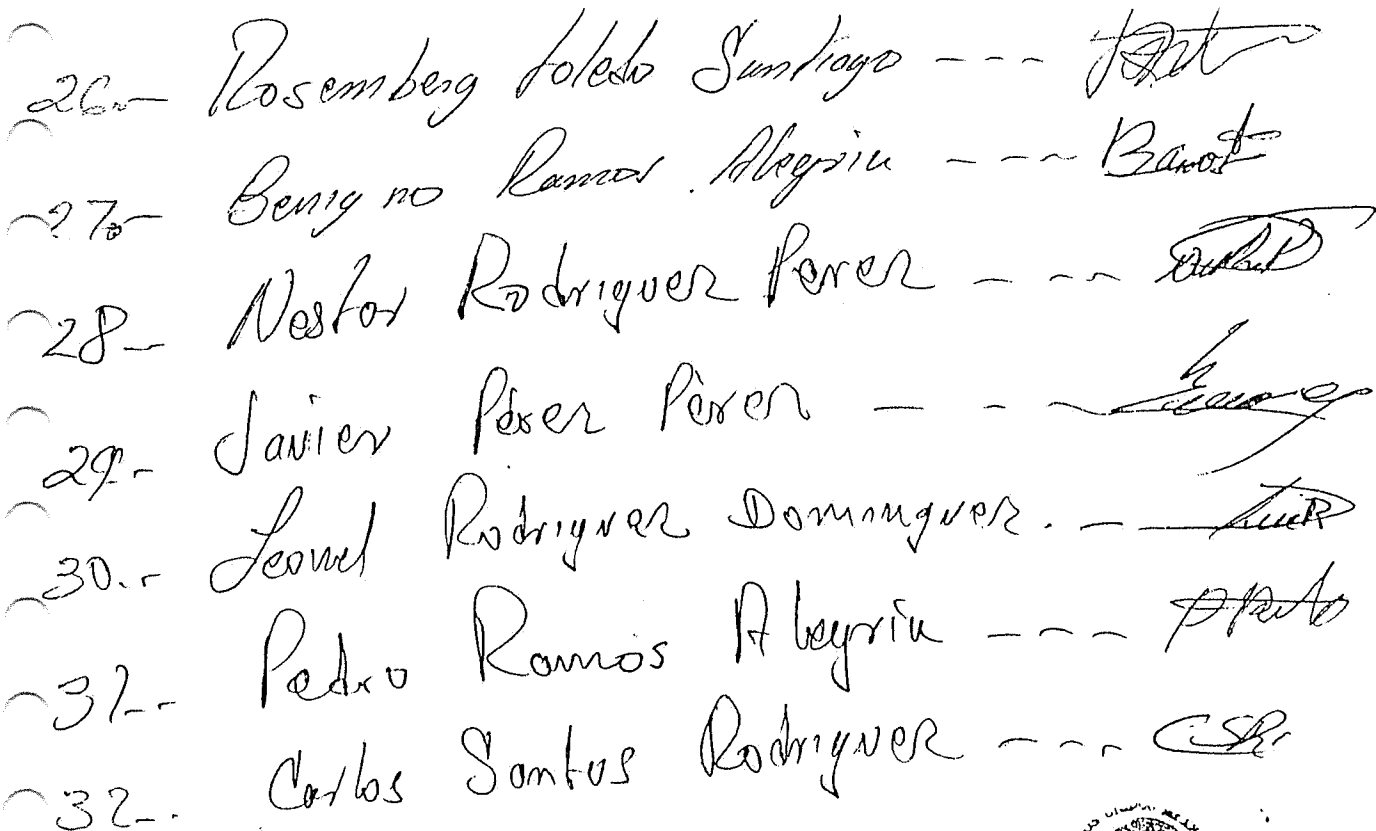 26.- Rosemberg Toledo Santiago ---
27.- Benigno Ramos Alegria ---
28-- Nestor Rodriguez Perez ---
29.- Javier Pérez Pérez ---
30.-- Leonel Rodriguez Dominguez. --
31-.- Pedro Ramos Alegria ---
32--. Carlos Santos Rodriguez --- CSR.